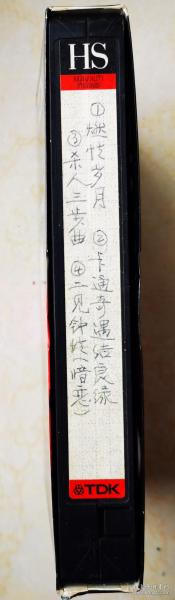 HS
①燃情岁月
②卡通奇遇结良缘
③杀人三步曲
④一见钟情(暗恋)
TDK